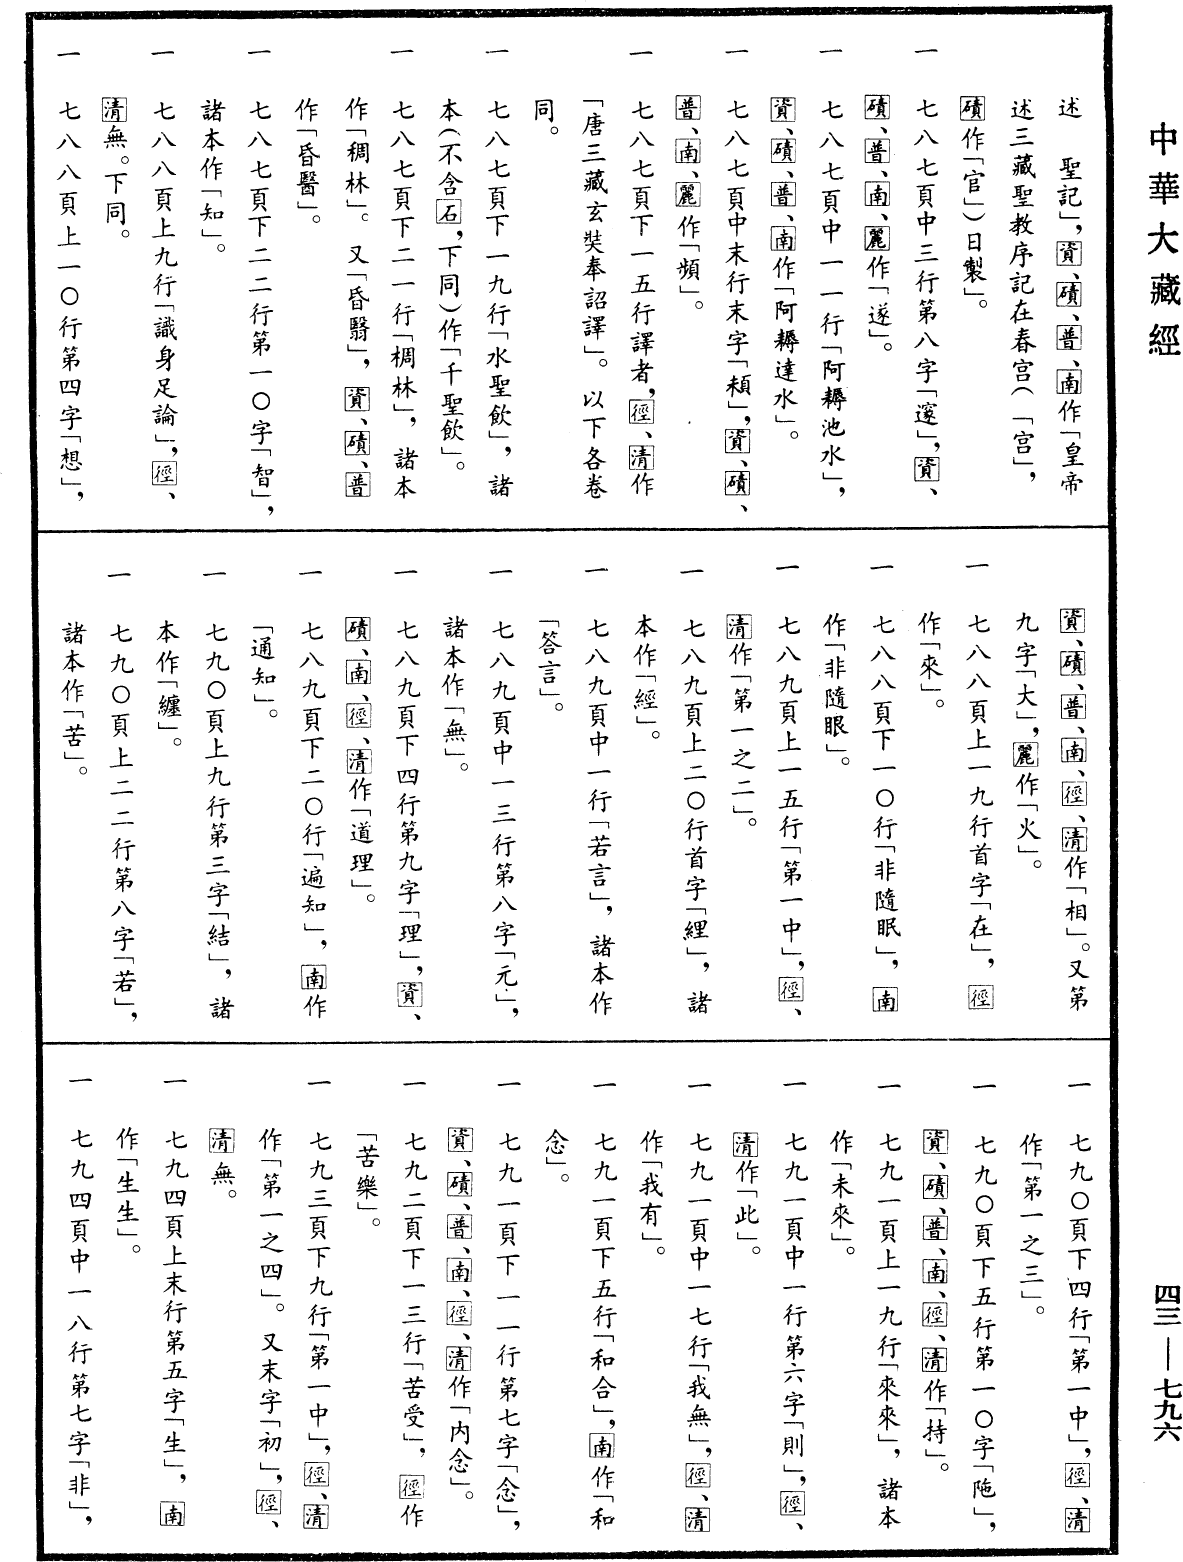 中華大藏經
述　聖記」，資、磧、普、南作「皇帝
述三藏聖教序記在春宮（「宮」，
磧作「官」）日製」。
一　七八七頁中三行第八字「邃」，資、
磧、普、南、麗作「遂」。
一　七八七頁中一一行「阿耨池水」，
資、磧、普、南作「阿耨達水」。
一　七八七頁中末行末字「頼」，資、磧、
普、南、麗作「頻」。
一　七八七頁下一五行譯者，徑、清作
「唐三藏玄奘奉詔譯」。以下各卷
同。
一　七八七頁下一九行「水聖飲」，諸
本（不含石，下同）作「千聖飲」。
一　七八七頁下二一行「椆林」，諸本
作「稠林」。又「昏翳」，資、磧、普
作「昏醫」。
一　七八七頁下二二行第一〇字「智」，
諸本作「知」。
一　七八八頁上九行「識身足論」，徑、
清無。下同。
一　七八八頁上一〇行第四字「想」，
資、磧、普、南、徑、清作「相」。又第
九字「大」，麗作「火」。
一　七八八頁上一九行首字「在」，徑
作「來」。
一　七八八頁下一〇行「非隨眠」，南
作「非隨眼」。
一　七八九頁上一五行「第一中」，徑、
清作「第一之二」。
一　七八九頁上二〇行首字「經」，諸
本作「經」。
一　七八九頁中一行「若言」，諸本作
「答言」。
一　七八九頁中一三行第八字「元」，
諸本作「無」。
一　七八九頁下四行第九字「理」，資、
磧、南、徑、清作「道理」。
一　七八九頁下二〇行「遍知」，南作
「通知」。
一　七九〇頁上九行第三字「結」，諸
本作「纏」。
一　七九〇頁上二二行第八字「若」，
諸本作「苦」。
一　七九〇頁下四行「第一中」，徑、清
作「第一之三」。
一　七九〇頁下五行第一〇字「陁」，
資、磧、普、南、徑、清作「持」。
一　七九一頁上一九行「來來」，諸本
作「未來」。
一　七九一頁中一行第六字「則」，徑、
清作「此」。
一　七九一頁中一七行「我無」，徑、清
作「我有」。
一　七九一頁下五行「和合」，南作「和
念」。
一　七九一頁下一一行第七字「念」，
資、磧、普、南、徑、清作「內念」。
一　七九二頁下一三行「苦受」，徑作
「苦樂」。
一　七九三頁下九行「第一中」，徑、清
作「第一之四」。又末字「初」，徑、
清無。
一　七九四頁上末行第五字「生」，南
作「生生」。
一　七九四頁中一八行第七字「非」，
四三—七九六